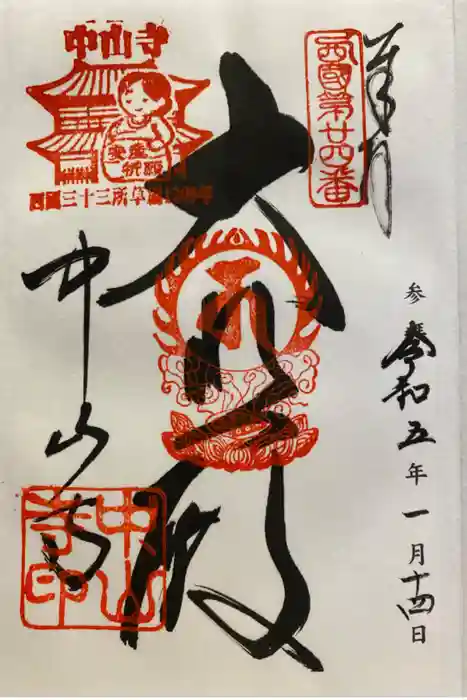 奉拝
西國第廿四番
参 令和五年一月十四日
大悲殿
中山寺
安産祈願
西國三十三所草創1300年
中山寺
中山寺印